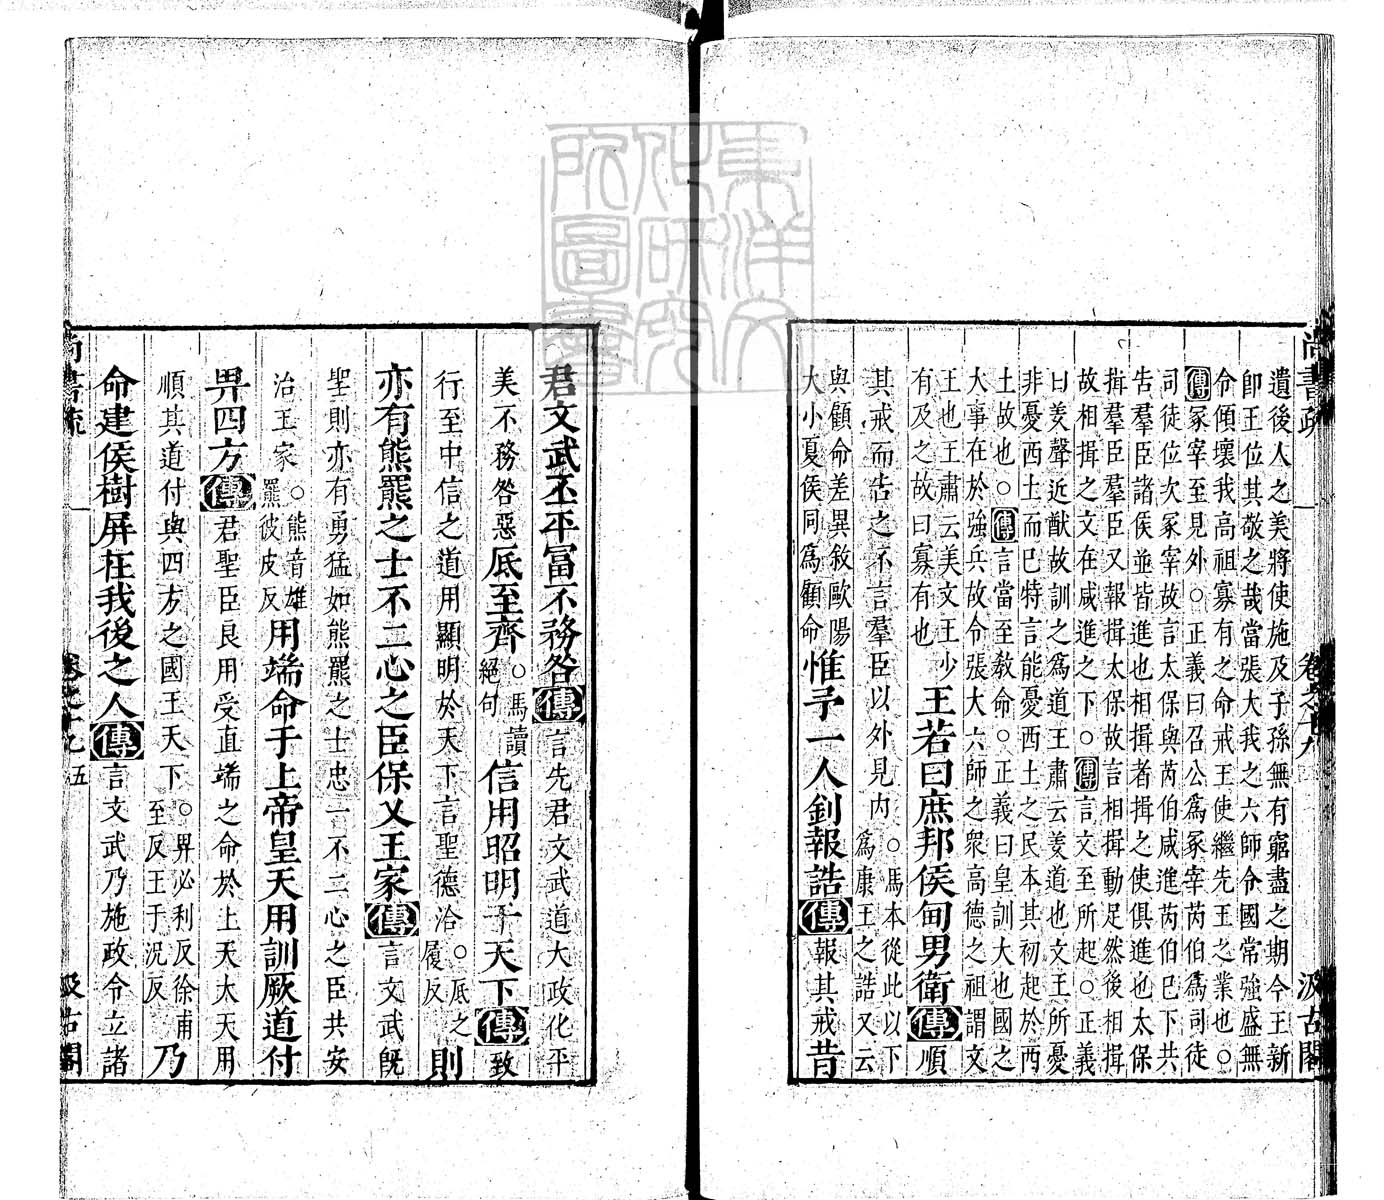 尚書疏 卷之十九 汲古閣
遺後人之美將使施及子孫無有窮盡之期今王新
卽王位其敬之哉當張大我之六師令國常強盛無
令傾壞我高祖寡有之命戒王使繼先王之業也○
傳冢宰至見外○正義曰召公爲冢宰芮伯爲司徒
司徒位次冢宰故言太保與芮伯咸進芮伯已下共
告羣臣諸侯並皆進也相揖者揖之使俱進也太保
揖羣臣羣臣又報揖太保故言相揖動足然後相揖
故相揖之文在咸進之下○傳言文至所起○正義
曰羑聲近猷故訓之爲道王肅云羑道也文王所憂
非憂西土而已特言能憂西土之民本其初起於西
土故也○傳言當至敎命○正義曰皇訓大也國之
大事在於強兵故令張大六師之衆高德之祖謂文
王也王肅云美文王少
有及之故曰寡有也 王若曰庶邦侯甸男衛傳順
其戒而告之不言羣臣以外見內○馬本從此以下爲康王之誥又云
與顧命差異敘歐陽大小夏侯同爲顧命惟予一人釗報誥傳報其戒昔
君文武丕平富不務咎傳言先君文武道大政化平
美不務咎惡厎至齊○馬讀絕句信用昭明于天下傳致
行至中信之道用顯明於天下言聖德洽○厎之履反則
亦有熊羆之士不二心之臣保乂王家傳言文武旣
聖則亦有勇猛如熊羆之士忠一不二心之臣共安
治王家○熊音雄羆彼皮反用端命于上帝皇天用訓厥道付
畀四方傳君聖臣良用受直端之命於上天大天用
順其道付與四方之國王天下○畀必利反徐甫至反王于況反乃
命建侯樹屏在我後之人傳言文武乃施政令立諸
尚書疏 卷之十九 五 汲古閣
東洋文化研究所圖書